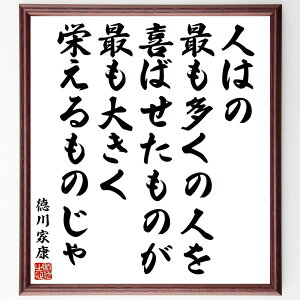 人はの
最も多くの人を
喜ばせたものが
最も大きく
栄えるものじゃ
徳川家康